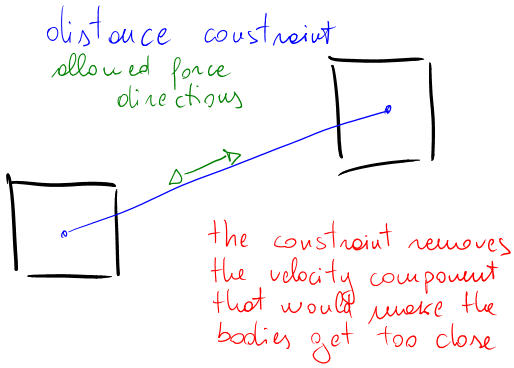 distance constraint
allowed force
directions
the constraint removes
the velocity component
that would make the
bodies get too close